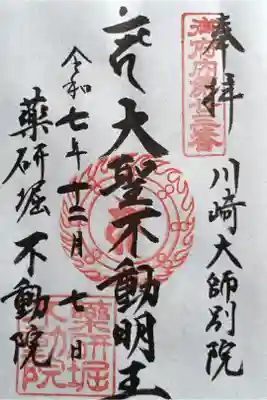 奉拝
川崎大師別院
大聖不動明王
令和七年十二月七日
薬研堀不動院
薬研堀
不動院